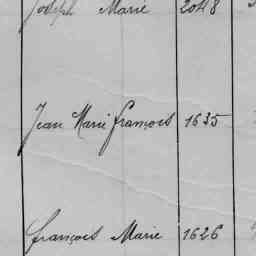 Joseph Marie 2048
Jean Marie françois 1635
françois Marie 1626